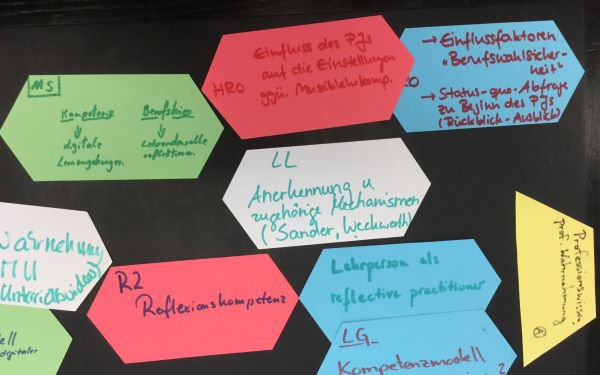 MS
Kompetenz
digitale
Lernumgebungen
Berufsbio
Lehrendenrolle
reflektieren
HRO
Einfluss des PJs
auf die Einstellungen
ggü. Musiklehrkomp.
→ Einflussfaktoren
"Berufswahlsicher-
heit"
→ Status-quo-Abfrage
zu Beginn des PJs
(Rückblick-Ausblick)
LL
Anerkennung u
zugehörige Mechanismen
(Sander, Weckwerth)
MU
R2
Reflexionskompetenz
Lehrperson als
reflective practitioner
LG
Kompetenzmodell
digitaler
Professionswissen,
Prof. Wahrnehmung